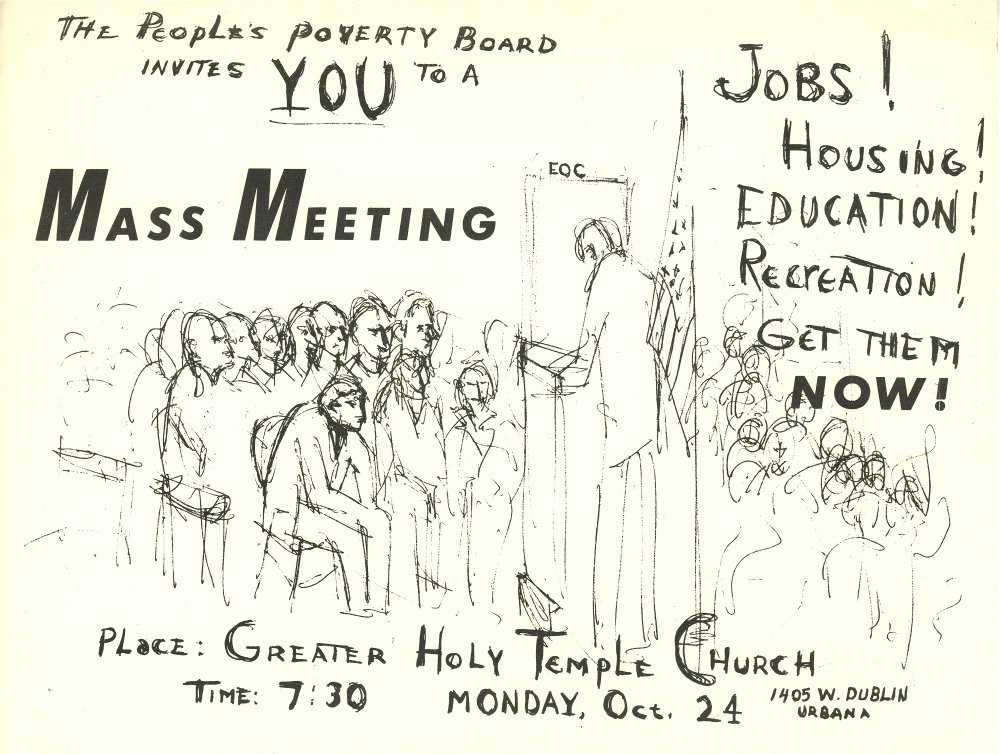 THE PEOPLE'S POVERTY BOARD
INVITES YOU TO A
MASS MEETING
EOC
JOBS!
HOUSING!
EDUCATION!
RECREATION!
GET THEM
NOW!
PLACE: GREATER HOLY TEMPLE CHURCH
TIME: 7:30 MONDAY, Oct. 24
1405 W. DUBLIN
URBANA